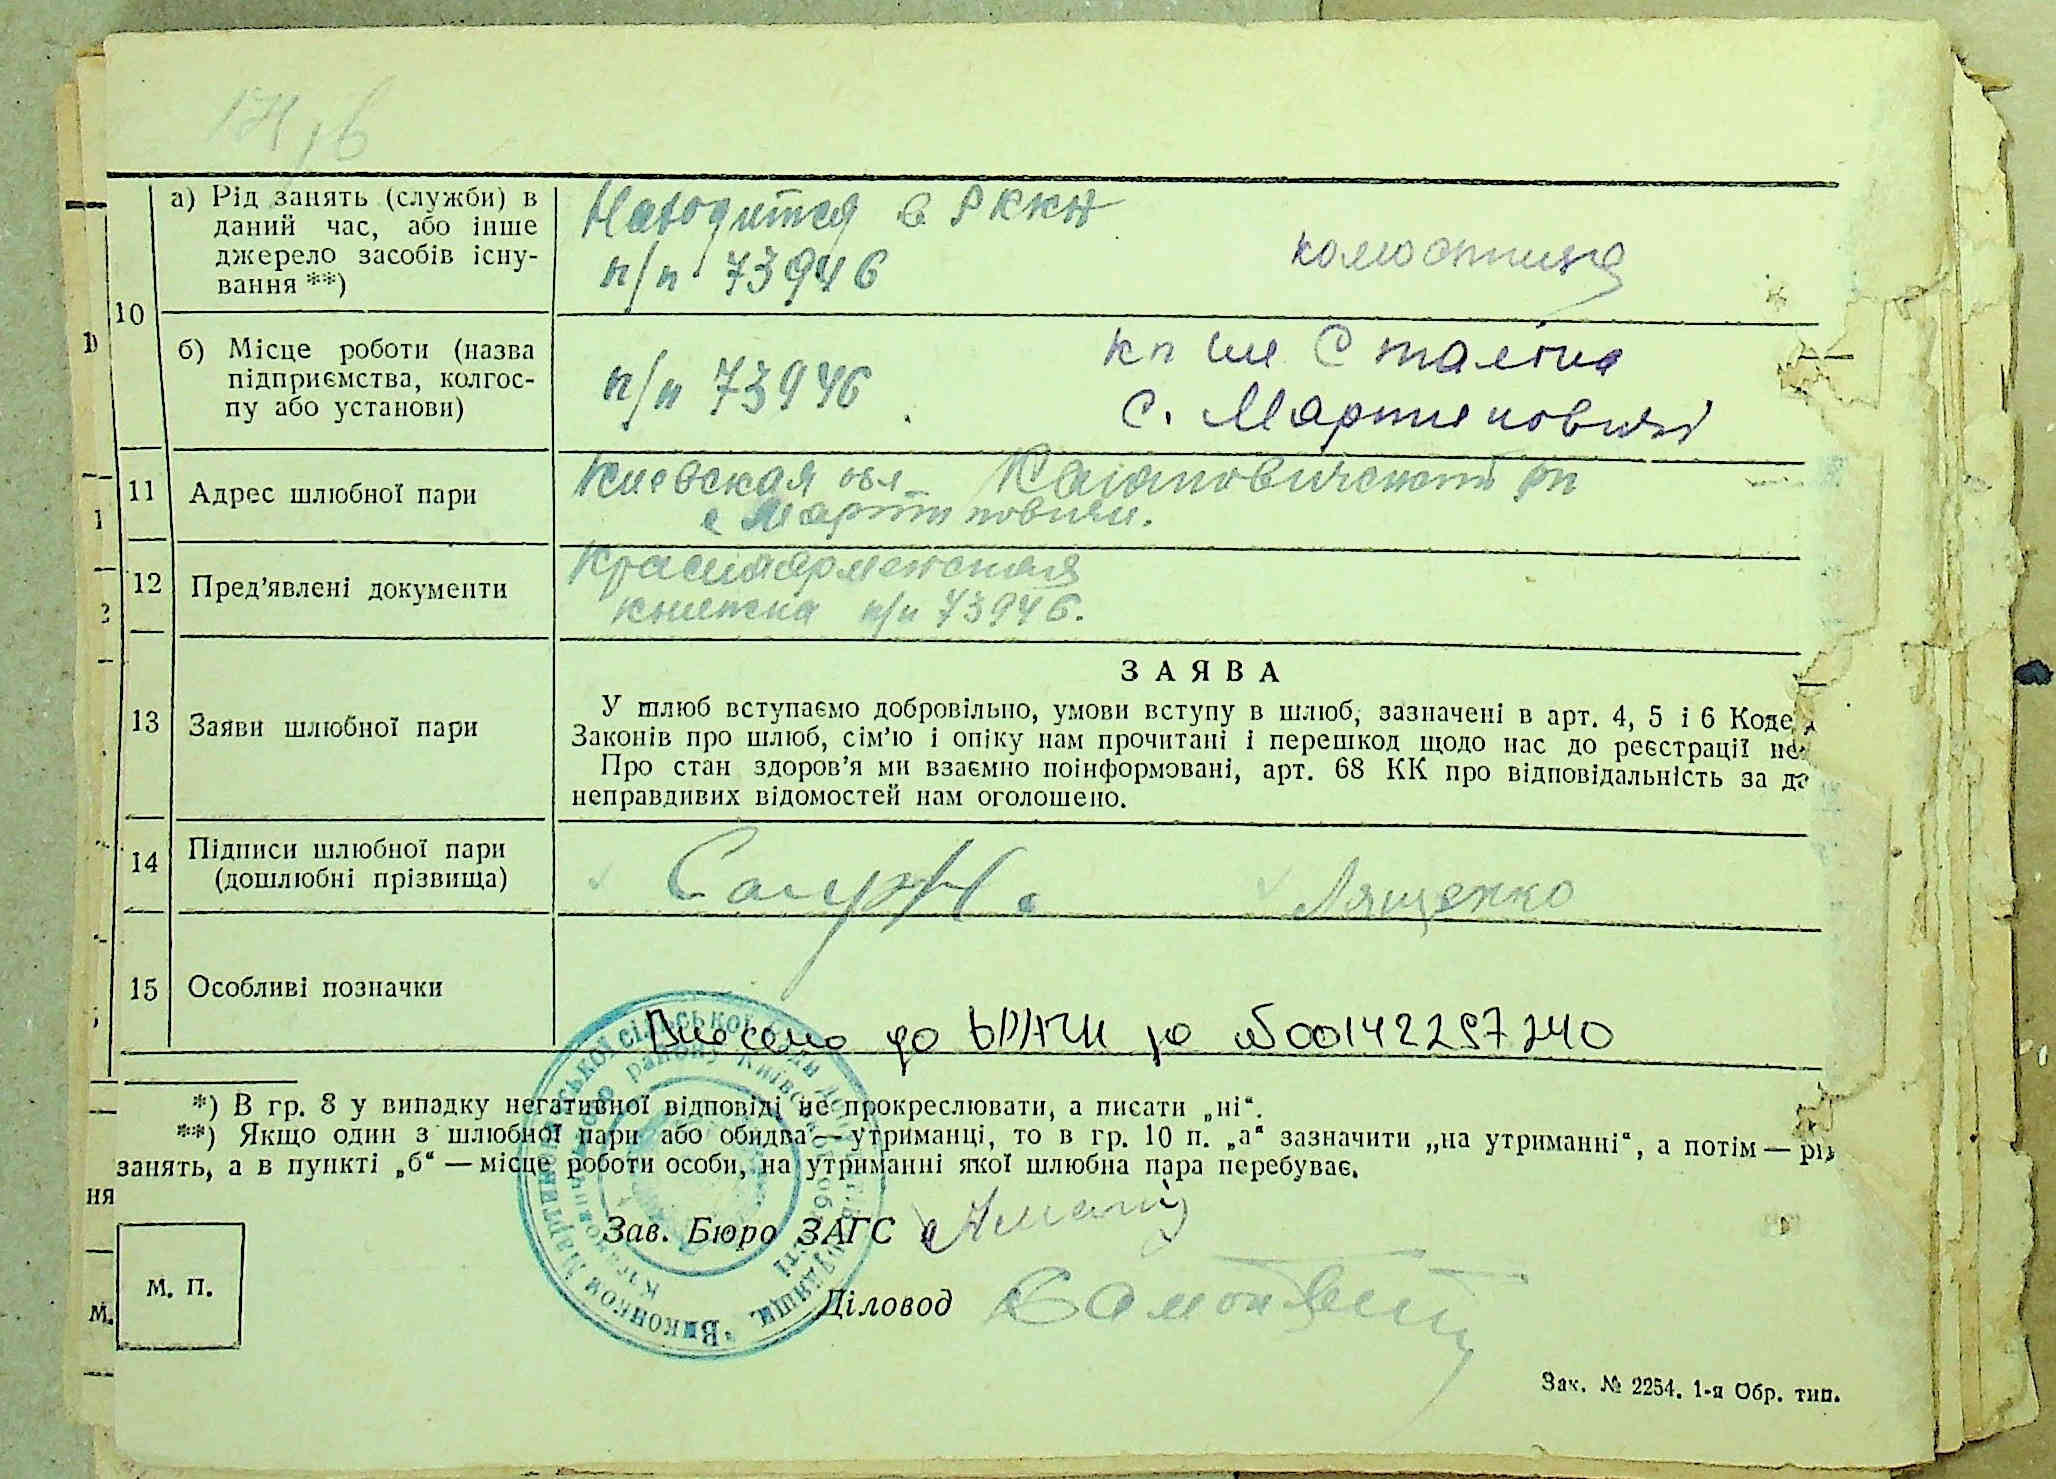 а) Рід занять (служби) в
даний час, або інше
джерело засобів існу-
вання **)
Находится в РККА
п/п 73946
колгоспниця
10
б) Місце роботи (назва
підприємства, колгос-
пу або установи)
п/п 73946
кп им Сталіна
с. Мартиновки
11 Адрес шлюбної пари
Киевская обл Кагановический рн
с Мартиновки.
12 Пред’явлені документи
Красноармейская
книжка п/п 73946.
13 Заяви шлюбної пари
ЗАЯВА
У шлюб вступаємо добровільно, умови вступу в шлюб, зазначені в арт. 4, 5 і 6 Коде
Законів про шлюб, сім’ю і опіку нам прочитані і перешкод щодо нас до реєстрації не
Про стан здоров’я ми взаємно поінформовані, арт. 68 КК про відповідальність за да
неправдивих відомостей нам оголошено.
14 Підписи шлюбної пари
(дошлюбні прізвища)
Лященко
15 Особливі позначки
Внесено до ДРАЦС за №00142257240
*) В гр. 8 у випадку негативної відповіді не прокреслювати, а писати „ні“.
**) Якщо один з шлюбної пари або обидва — утриманці, то в гр. 10 п. „а“ зазначити „на утриманні“, а потім — рід
занять, а в пункті „б“ — місце роботи особи, на утриманні якої шлюбна пара перебуває.
ня
Зав. Бюро ЗАГС
М. П.
м.
Діловод
Зак. № 2254. 1-я Обр. тип.